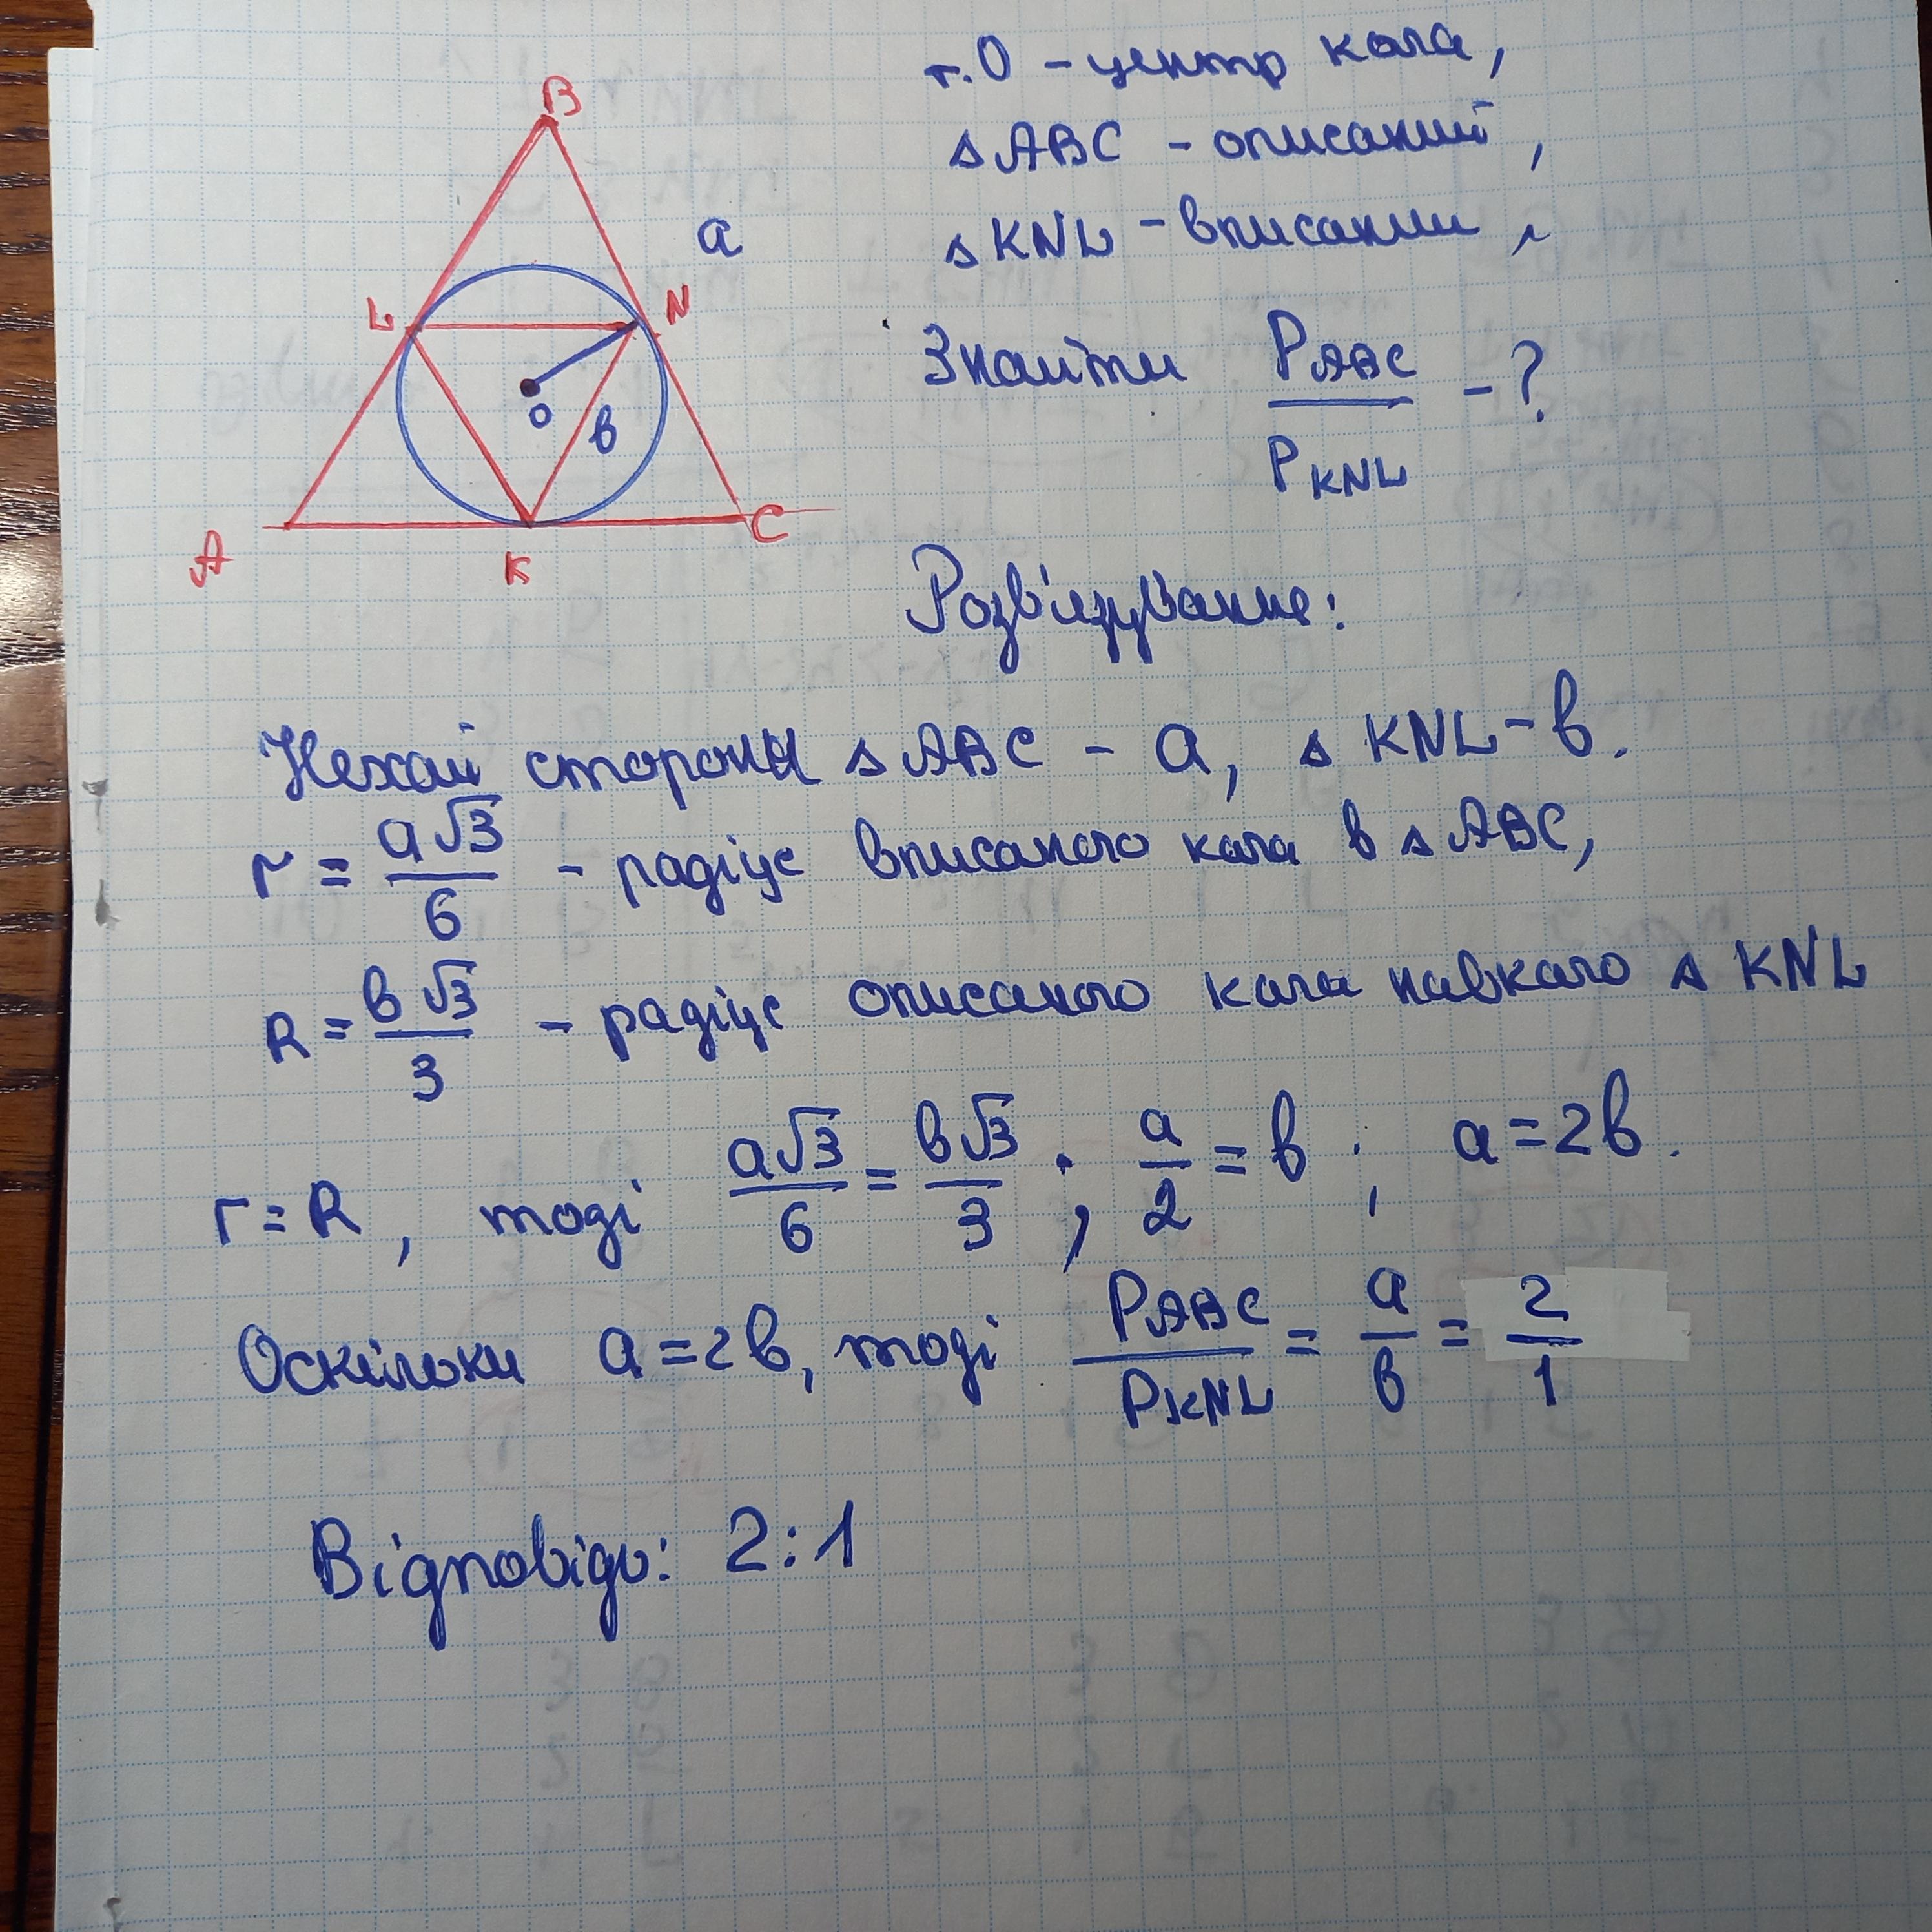 B
a
L
N
O
в
A
K
C
т.O - центр кола,
△ABC - описаний,
△KNL - вписаний,
Знайти P_ABC / P_KNL - ?
Розв'язування:
Нехай сторони △ABC - a, △KNL - в.
r = a√3 / 6 - радіус вписаного кола в △ABC,
R = в√3 / 3 - радіус описаного кола навколо △KNL
r = R, тоді a√3 / 6 = в√3 / 3 ; a / 2 = в ; a = 2в.
Оскільки a = 2в, тоді P_ABC / P_KNL = a / в = 2 / 1
Відповідь: 2:1